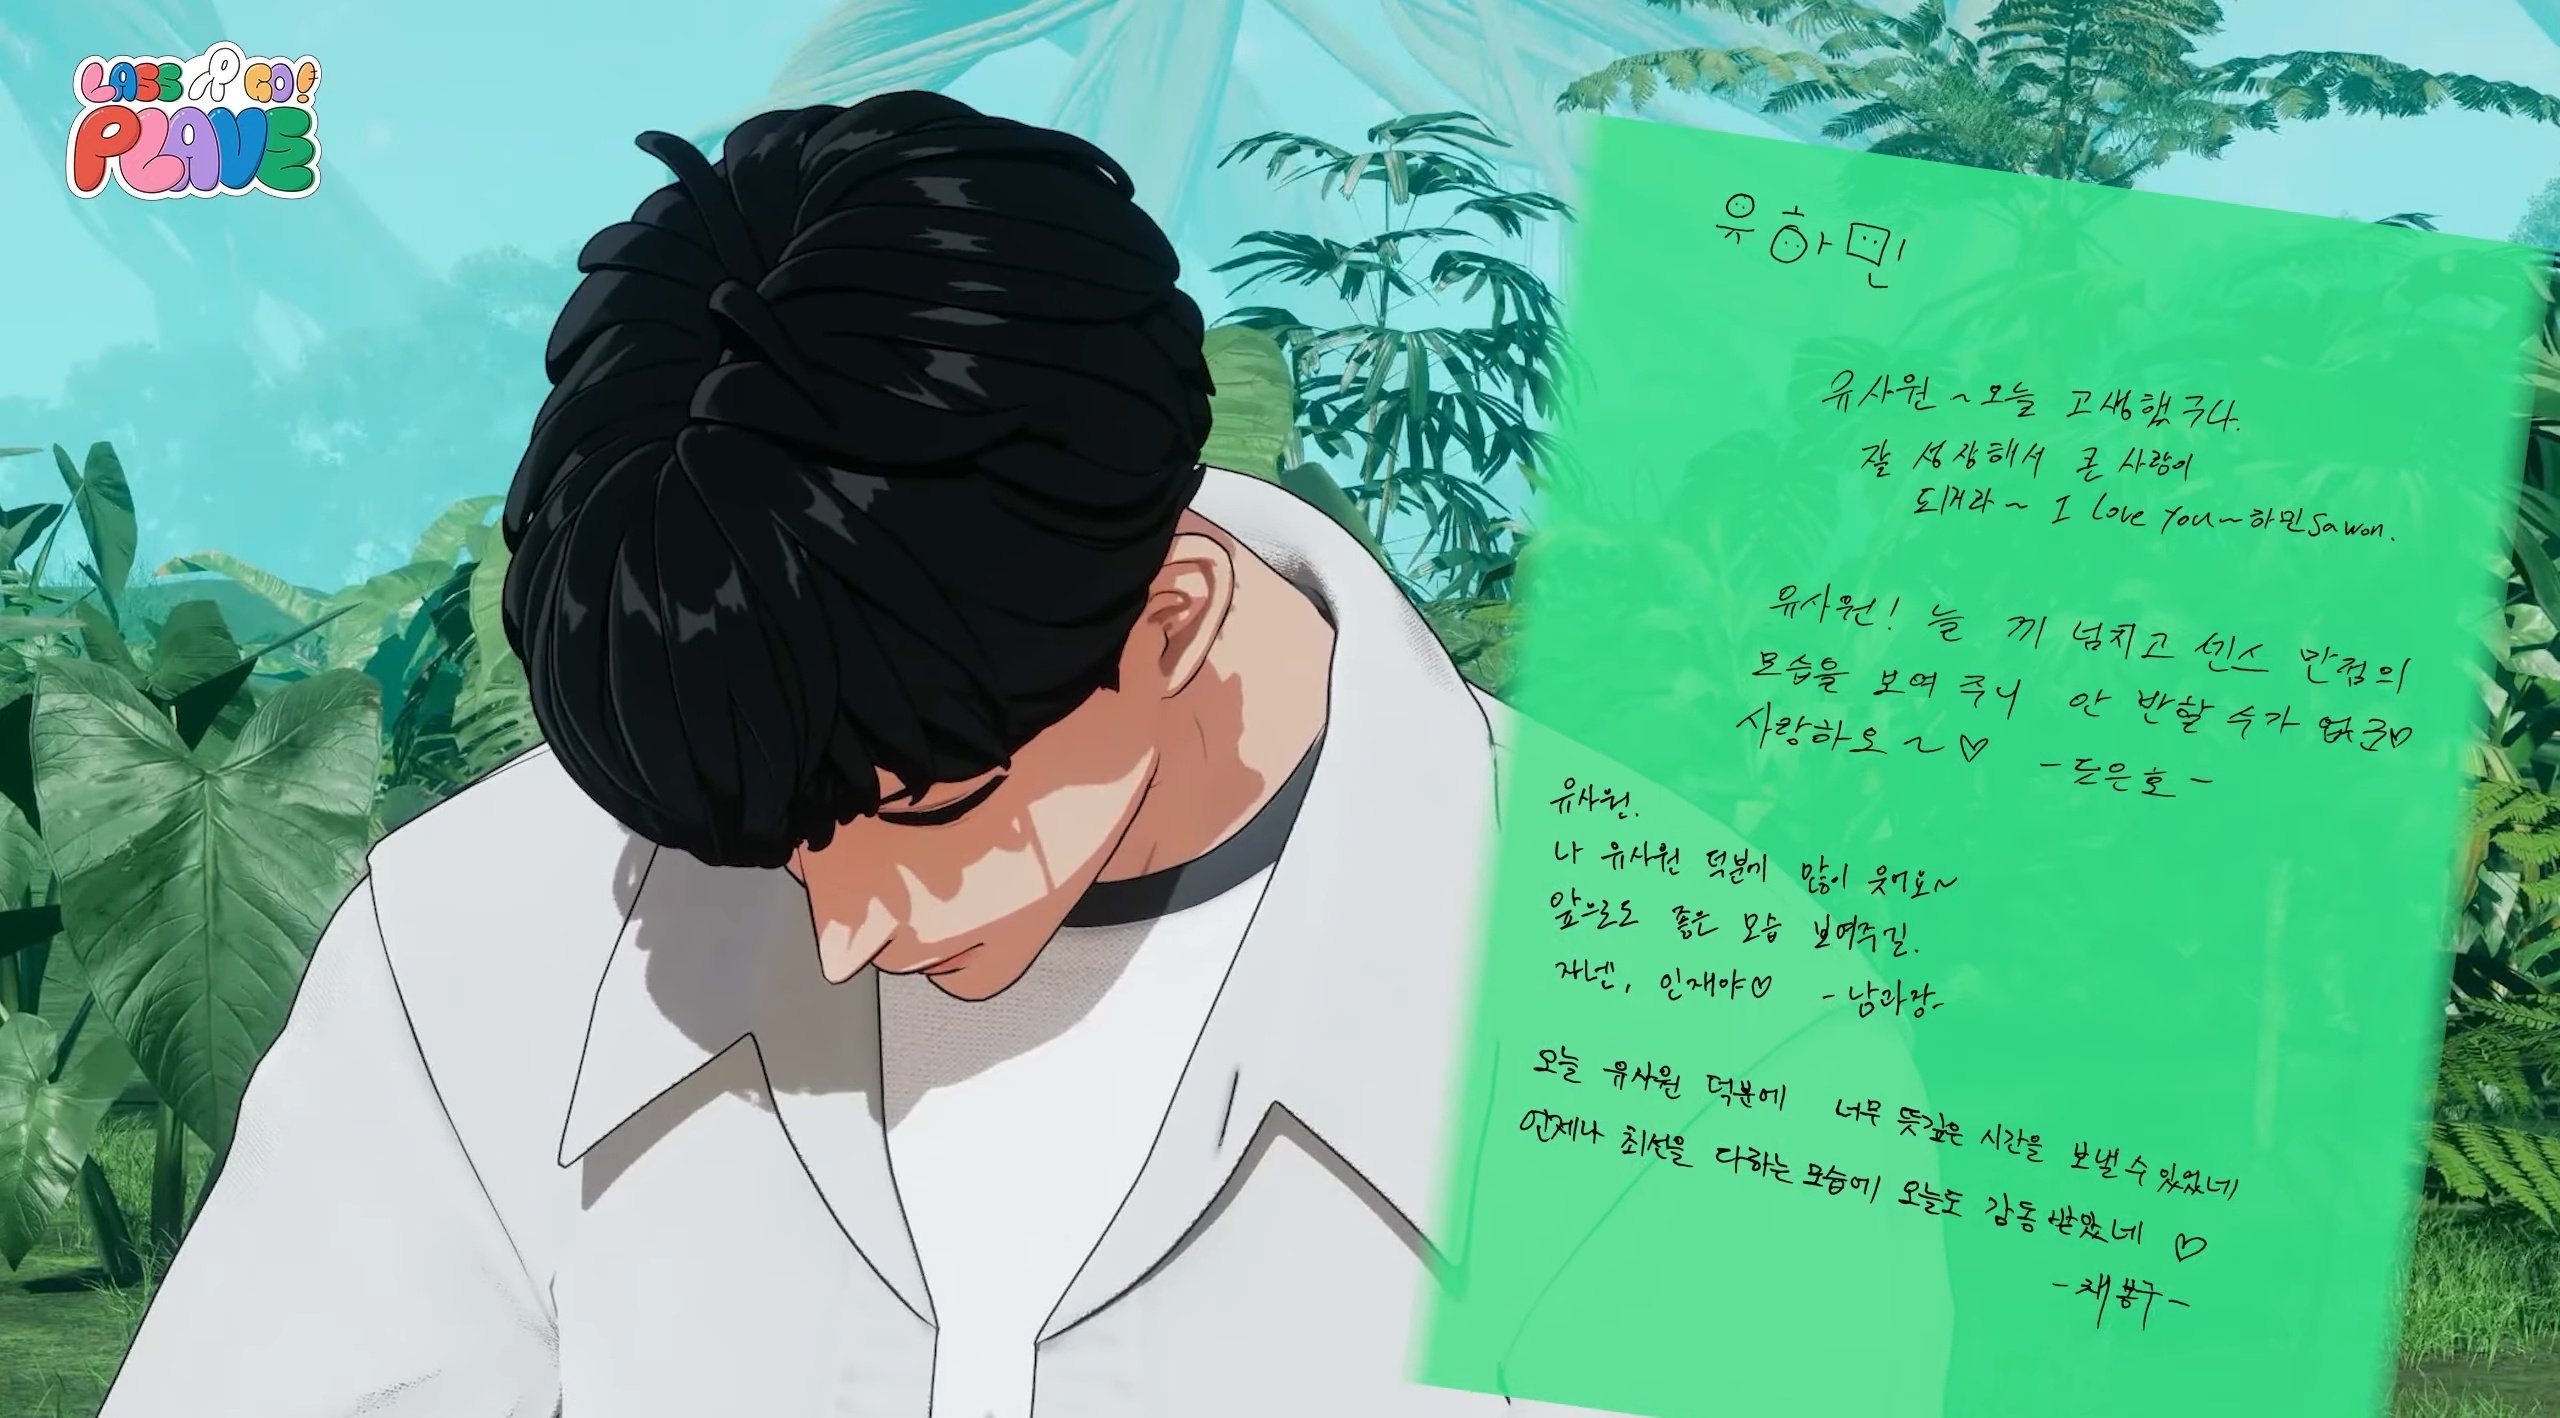 LASS GO!
PLAVE
유하민
유사원~오늘 고생했구나.
잘 성장해서 큰 사람이
되거라~ I love You~하민Sawon.
유사원! 늘 끼 넘치고 센스 만점의
모습을 보여 주니 안 반할 수가 없군♡
사랑하오~♡ -도은호-
유사원.
나 유사원 덕분에 많이 웃어요~
앞으로도 좋은 모습 보여주길.
자넨, 인재야♡ -남과장-
오늘 유사원 덕분에 너무 뜻깊은 시간을 보낼 수 있었네
언제나 최선을 다하는 모습에 오늘도 감동 받았네 ♡
-채봉구-